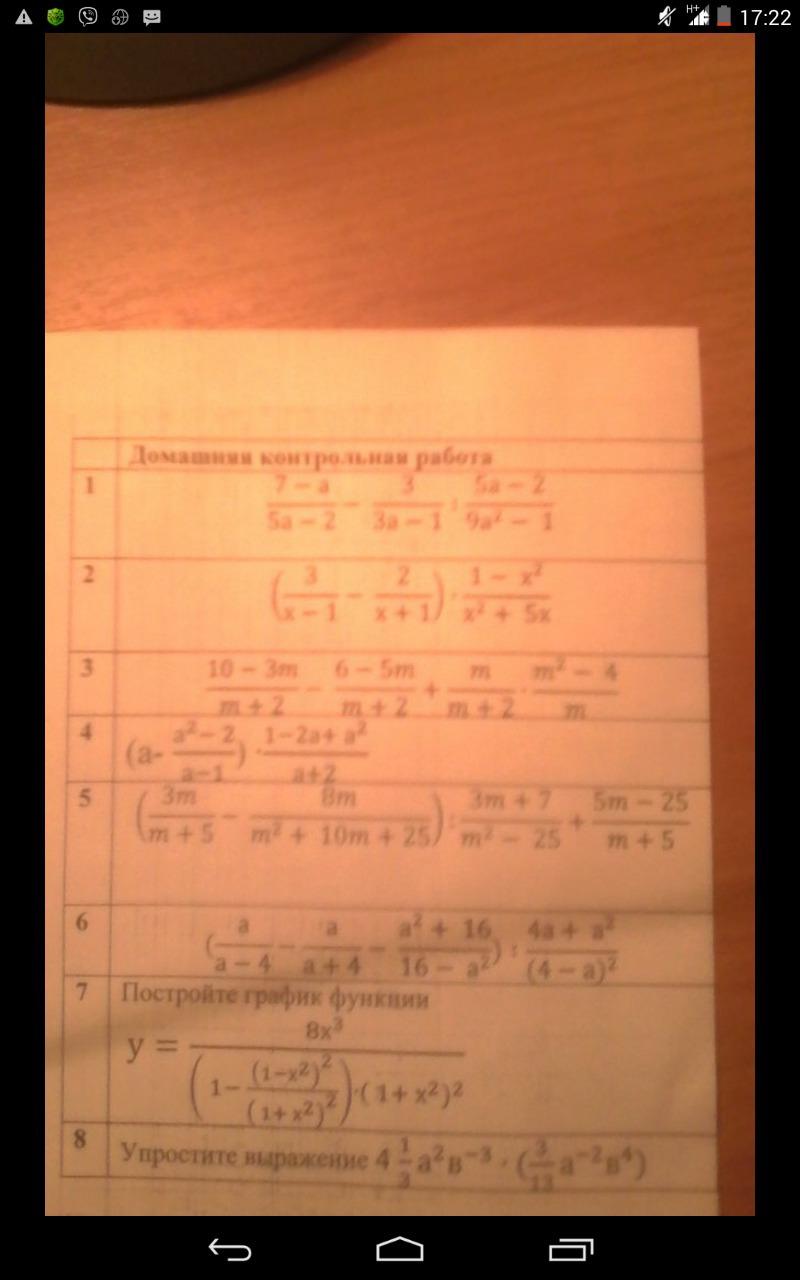 H+ 17:22
Домашняя контрольная работа
1 \frac{7 - a}{5a - 2} - \frac{3}{3a - 1} : \frac{5a - 2}{9a² - 1}
2 (\frac{3}{x - 1} - \frac{2}{x + 1}) · \frac{1 - x²}{x² + 5x}
3 \frac{10 - 3m}{m + 2} - \frac{6 - 5m}{m + 2} + \frac{m}{m + 2} · \frac{m² - 4}{m}
4 (a- \frac{a²- 2}{a-1}) · \frac{1-2a+ a²}{a+2}
5 (\frac{3m}{m + 5} - \frac{8m}{m² + 10m + 25}) : \frac{3m + 7}{m² - 25} + \frac{5m - 25}{m + 5}
6 (\frac{a}{a - 4} - \frac{a}{a + 4} - \frac{a² + 16}{16 - a²}) : \frac{4a + a²}{(4 - a)²}
7 Постройте график функции
y = \frac{8x³}{(1-\frac{(1-x²)²}{(1+x²)²})·(1+ x²)²}
8 Упростите выражение 4\frac{1}{3}a²в⁻³ · (\frac{3}{13}a⁻²в⁴)